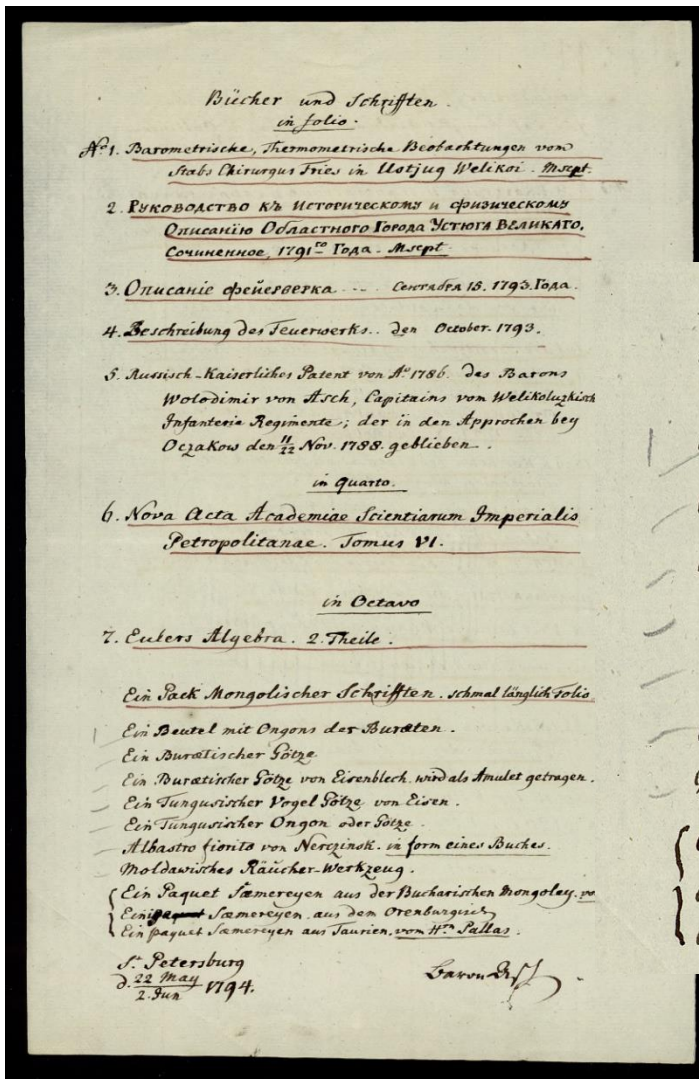 Bücher und Schrifften.
in folio.
No 1. Barometrische, Thermometrische Beobachtungen vom
Stabs Chirurgus Fries in Ustjug Welikoi. Mscpt.
2. Руководство къ Историческому и физическому
Описанію Областного Города Устюга Великаго,
Сочиненное, 1791го Года. Mscpt.
3. Описаніе фейерверка --- Сентября 15. 1793. Года.
4. Beschreibung des Feuerwerks.. den October. 1793.
5. Russisch-Kaiserliches Patent von Ao 1786. des Barons
Wolodimir von Asch, Capitains vom Welikoluzkisch
Infanterie Regimente; der in den Approchen bey
Oczakow den 11/22 Nov. 1788. geblieben.
in Quarto.
6. Nova Acta Academiae Scientiarum Imperialis
Petropolitanae. Tomus VI.
in Octavo
7. Eulers Algebra. 2. Theile.
Ein Pack Mongolischer Schrifften. schmal länglich Folio
Ein Beutel mit Ongons der Buræten.
Ein Burætischer Götze
Ein Burætischer Götze von Eisenblech. wird als Amulet getragen.
Ein Tungusischer Vogel Götze von Eisen.
Ein Tungusischer Ongon oder Götze.
Albastro fiorito von Nerczinsk. in form eines Buches.
Moldawisches Räucher-Werkzeug.
Ein Paquet Sæmereyen aus der Bucharischen Mongoley.
Ein Sæmereyen aus dem
Ein paquet Sæmereyen aus Taurien. vom Hrn Pallas.
St Petersburg
d. 22 May / 2. Jun 1794.
Baron Asch